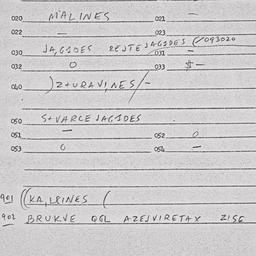 020 MALINES 021 —
022 — 023
030 JAGIDES REJTE JAGIDES (/093020
032 0 031 —
033 $ —
040 )Z+URAVINES/-
050 S+VARCE JAGIDES
051 — 052 0
053 0 054 —
901 ((KA, LRINES (
902 BRUKVE OGL AZEJVIRETAX ZISE